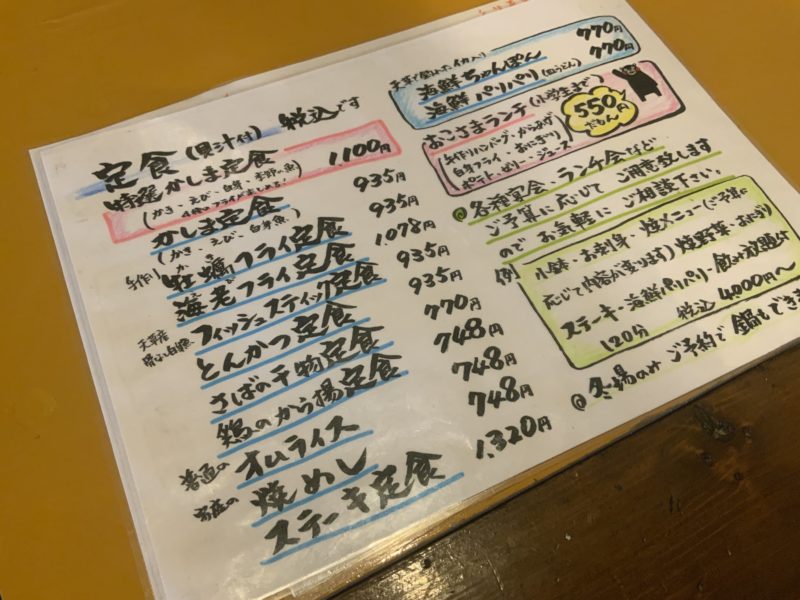 定食(果汁付) 税込です
特選かしま定食 1,100円
(かき、えび、白身、季節の魚)
かしま定食 935円
(かき、えび、白身魚)
手作り 牡蠣フライ定食 935円
かき
海老フライ定食 1,078円
天草産 フィッシュスティック定食 935円
とんかつ定食 935円
さばの干物定食 770円
鶏のから揚定食 748円
普通の オムライス 748円
焼めし 748円
ステーキ定食 1,320円
海鮮ちゃんぽん 770円
海鮮パリパリ(皿うどん) 770円
おこさまランチ(小学生まで)
550円
だもん
手作りハンバーグ、からあげ
白身フライ、おにぎり
ポテト、ゼリー、ジュース
@各種宴会、ランチ会など
ご予算に応じて ご用意致します
ので お気軽に ご相談下さい。
例
小鉢・お刺身・焼メニュー(ご予算に
応じて内容が変ります)焼野菜・おにぎり
ステーキ・海鮮パリパリ・飲み放題付
120分 税込 4,000円〜
@冬場のみ ご予約で 鍋もでき